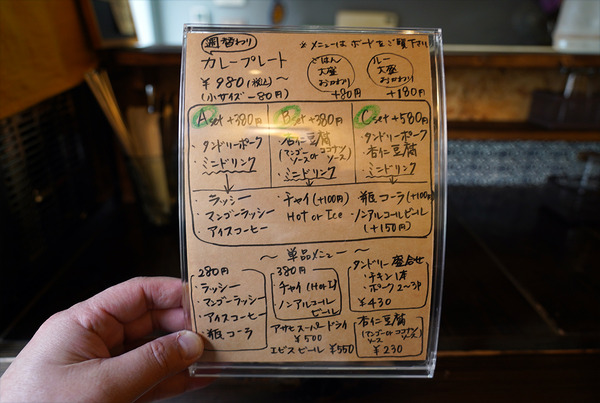 週替わり
※メニューはボードをご覧下さい
カレープレート
¥980(税込)〜
(小サイズ−80円)
ごはん
大盛
おかわり
+80円
ルー
大盛
おかわり
+180円
A set +380円
・タンドリーポーク
・ミニドリンク
B set +380円
・杏仁豆腐
(マンゴーソース or ココナツソース)
・ミニドリンク
C set +580円
・タンドリーポーク
・杏仁豆腐
・ミニドリンク
・ラッシー
・マンゴーラッシー
・アイスコーヒー
・チャイ(+100円)
Hot or Ice
・瓶コーラ(+100円)
・ノンアルコールビール
(+150円)
〜単品メニュー〜
280円
・ラッシー
・マンゴーラッシー
・アイスコーヒー
・瓶コーラ
380円
・チャイ(H or I)
・ノンアルコール
ビール
アサヒスーパードライ
¥500
エビスビール ¥550
タンドリー盛合せ
・チキン1本
・ポーク2〜3P
¥430
杏仁豆腐
(マンゴー or ココナツ
ソース ソース)
¥230